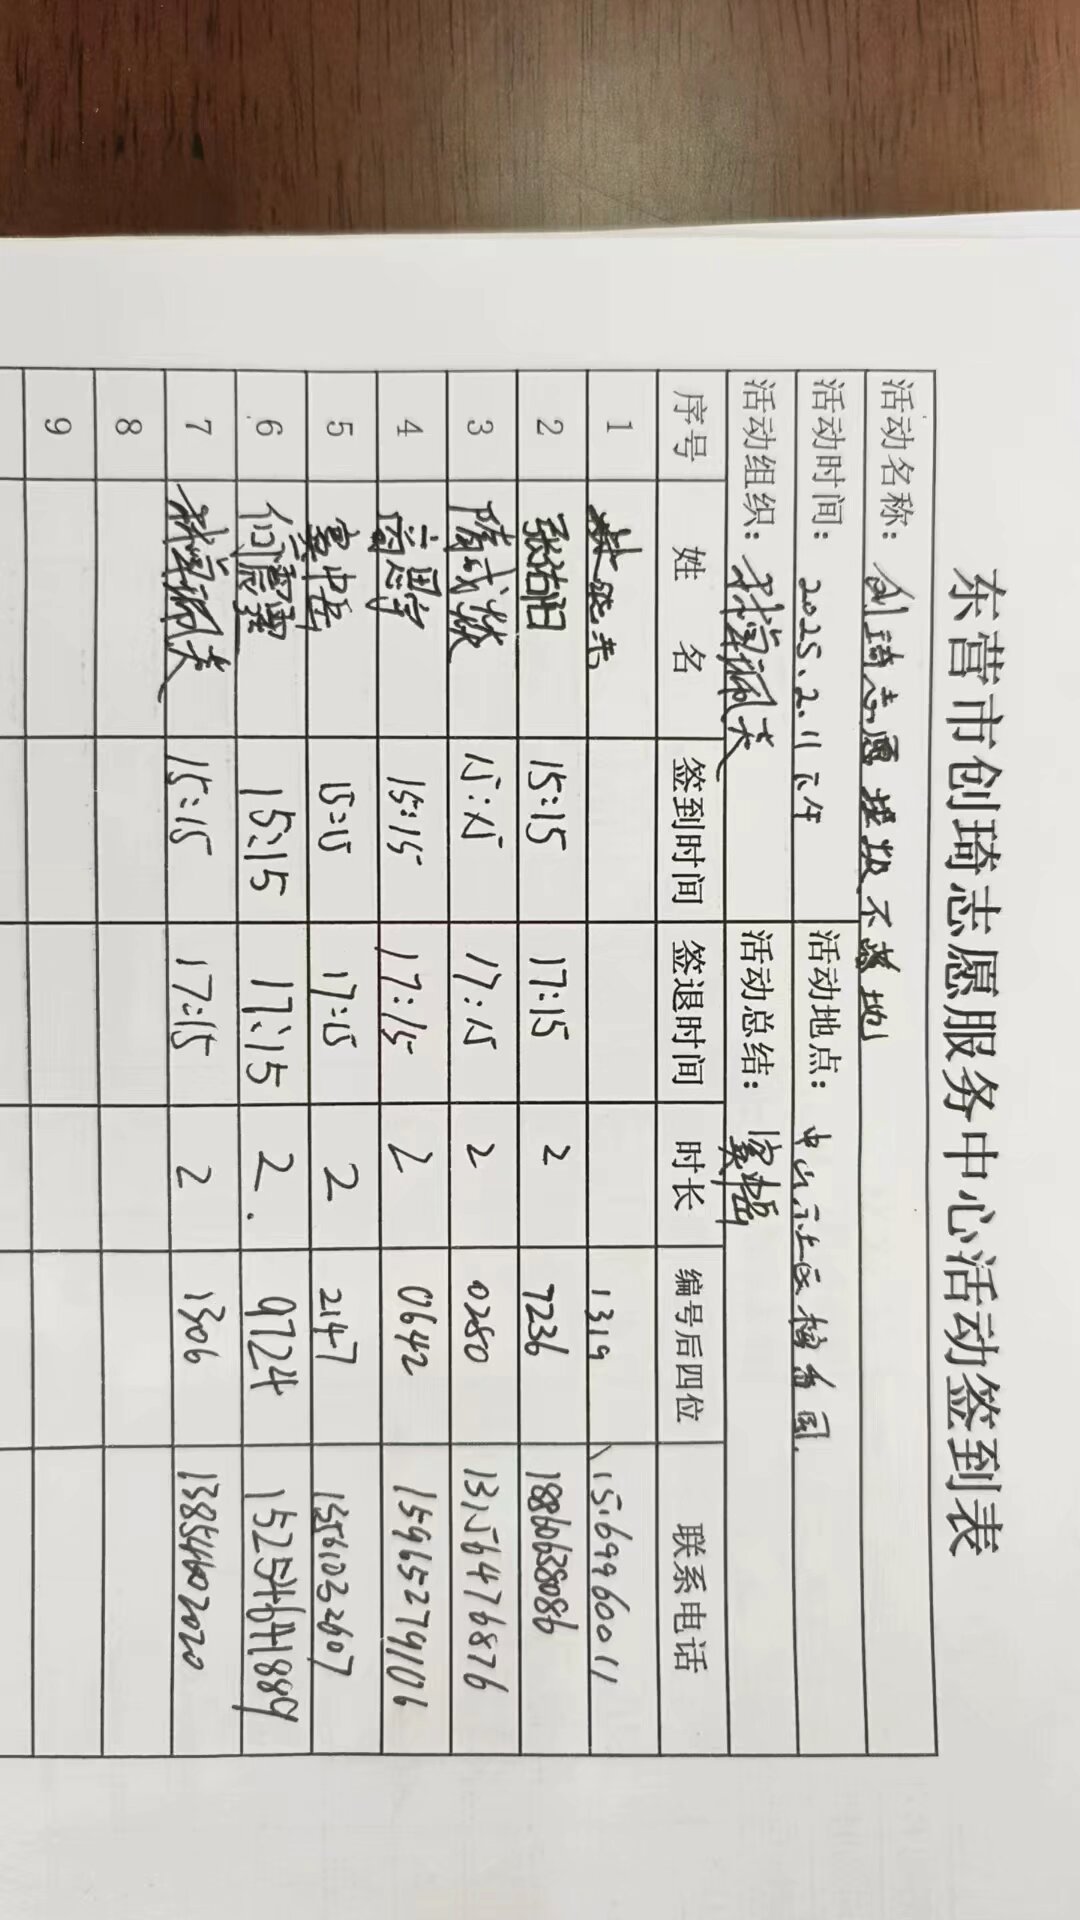 东营市创琦志愿服务中心活动签到表
活动名称： 创琦志愿 不 地
活动时间： 2025.2.11下午 活动地点： 中山 社区 园.
活动组织： 活动总结：
序号 姓 名 签到时间 签退时间 时长 编号后四位 联系电话
1 1319 15169960011
2 张洁阳 15:15 17:15 2 7236 18860638086
3 隋武 15:15 17:15 2 0280 13156476876
4 15:15 17:15 2 0642 15965279106
5 15:15 17:15 2 2147 13561032607
6 何震 15:15 17:15 2. 9724 15254641889
7 15:15 17:15 2 1306 13854602020
8
9